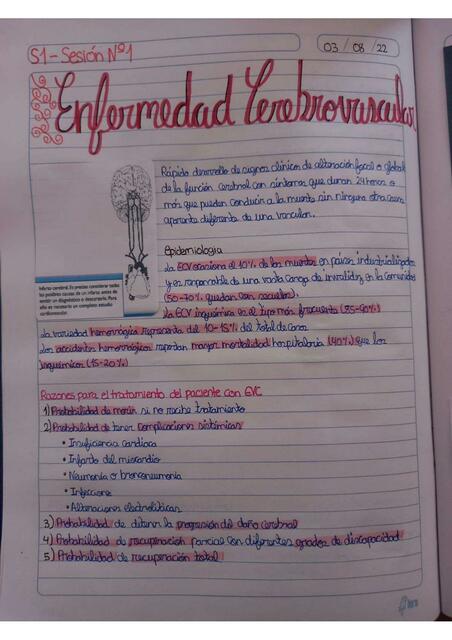 S1 - Sesión Nº1
03 / 08 / 22
Enfermedad Cerebrovascular
Rápido desarrollo de signos clínicos de alteración focal o global
de la función cerebral con síntomas que duran 24 horas o
más que puedan conducir a la muerte sin ninguna otra causa
aparente diferente de una vascular.
Infarto cerebral. Es preciso considerar todas
las posibles causas de un infarto antes de
emitir un diagnóstico o descartarlo. Para
ello es necesario un completo estudio
cardiovascular.
Epidemiologia
La ECV ocasiona el 10% de las muertes en países industrializados
y es responsable de una vasta carga de invalidez en la comunidad
(50-70% quedan con secuelas).
La ECV isquémica es el tipo más frecuente (85-90%)
La variedad hemorrágica representa del 10-15% del total de casos
Los accidentes hemorrágicos reportan mayor mortalidad hospitalaria (40%) que los
isquémicos (15-20%)
Razones para el tratamiento del paciente con EVC
1) Probabilidad de morir si no recibe tratamiento
2) Probabilidad de tener complicaciones sistémicas
• Insuficiencia cardiaca
• Infarto del miocardio
• Neumonía o bronconeumonía
• Infecciones
• Alteraciones electrolíticas
3) Probabilidad de detener la progresión del daño cerebral
4) Probabilidad de recuperación parcial con diferentes grados de discapacidad
5) Probabilidad de recuperación total